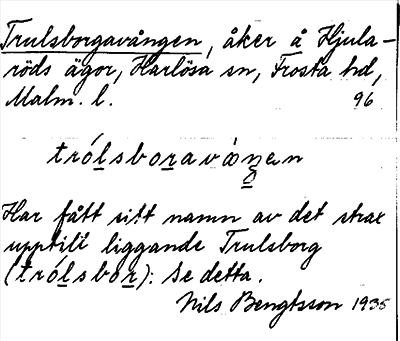 Trulsborgavången, åker å Hjula-
röds ägor, Harlösa sn, Frosta hd,
Malm. l. 96
trólsboravåŋen
Har fått sitt namn av det strax
upptill liggande Trulsborg
(trólsbor): Se detta.
Nils Bengtsson 1935